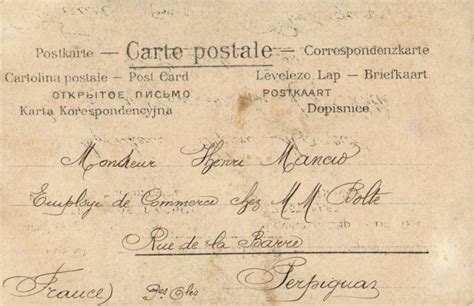 Postkarte — Carte postale — Correspondenzkarte
Cartolina postale — Post Card Levelezo Lap — Briefkaart
ОТКРЫТОЕ ПИСЬМО POSTKAART
Karta Korespondencyjna Dopisnice
Monsieur Henri Mancio
Employé de Commerce chez M M Bolte
Rue de la Barre
Perpignan
France)